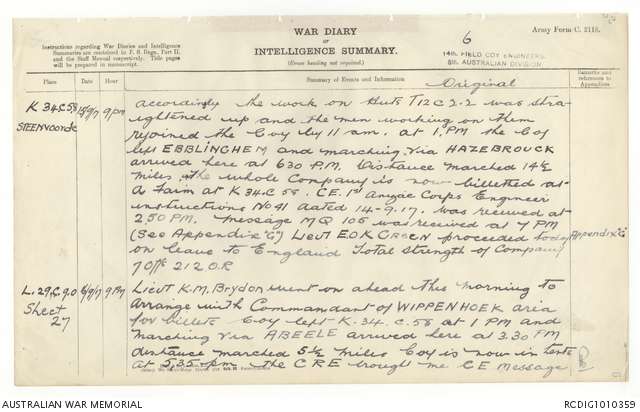 WAR DIARY
OR
INTELLIGENCE SUMMARY.
(Erase heading not required).
Army Form C. 2118.
Instructions regarding War Diaries and Intelligence
Summaries are contained in F. S. Regs., Part II,
and the Staff Manual respectively. Title pages
will be prepared in manuscript.
6
14th FIELD COY ENGINEERS,
5th AUSTRALIAN DIVISION.
Original
Place
Date
Hour
Summary of Events and Information
Remarks and
references to
Appendices
K 34 C 58
STEENVOORDE
9 pm
accordingly the work on Huts T12 C 2.2 was stra-
ightened up and the men working on them
rejoined the Coy by 11 am. at 1. PM the Coy
left EBBLINGHEM and marching via HAZEBROUCK
arrived here at 630 P.M. Distance marched 14½
miles. The whole Company is now billetted at
a Farm at K 34. C 58. C.E. 1st Anzac Corps Engineer
instructions No 41 dated 14-9.17. was received at
2 50 PM. Message MQ 105 was received at 7 PM
(see Appendix "G") Lieut E.O.K GREEN proceeded today
on leave to England Total strength of Company
7 Offs 212 O.R
Appendix "G"
L. 29. C. 9.0
Sheet
27
9 PM
Lieut K.M. Brydon went on ahead this morning to
Arrange with Commandant of WIPPENHOEK area
for billets Coy left K. 34. C. 58 at 1 PM and
marching via ABEELE arrived here at 3.30 PM
distance marched 5½ miles Coy is now in tents
at 5.35 pm the CRE brought me CE Message
AUSTRALIAN WAR MEMORIAL
RCDIG1010359